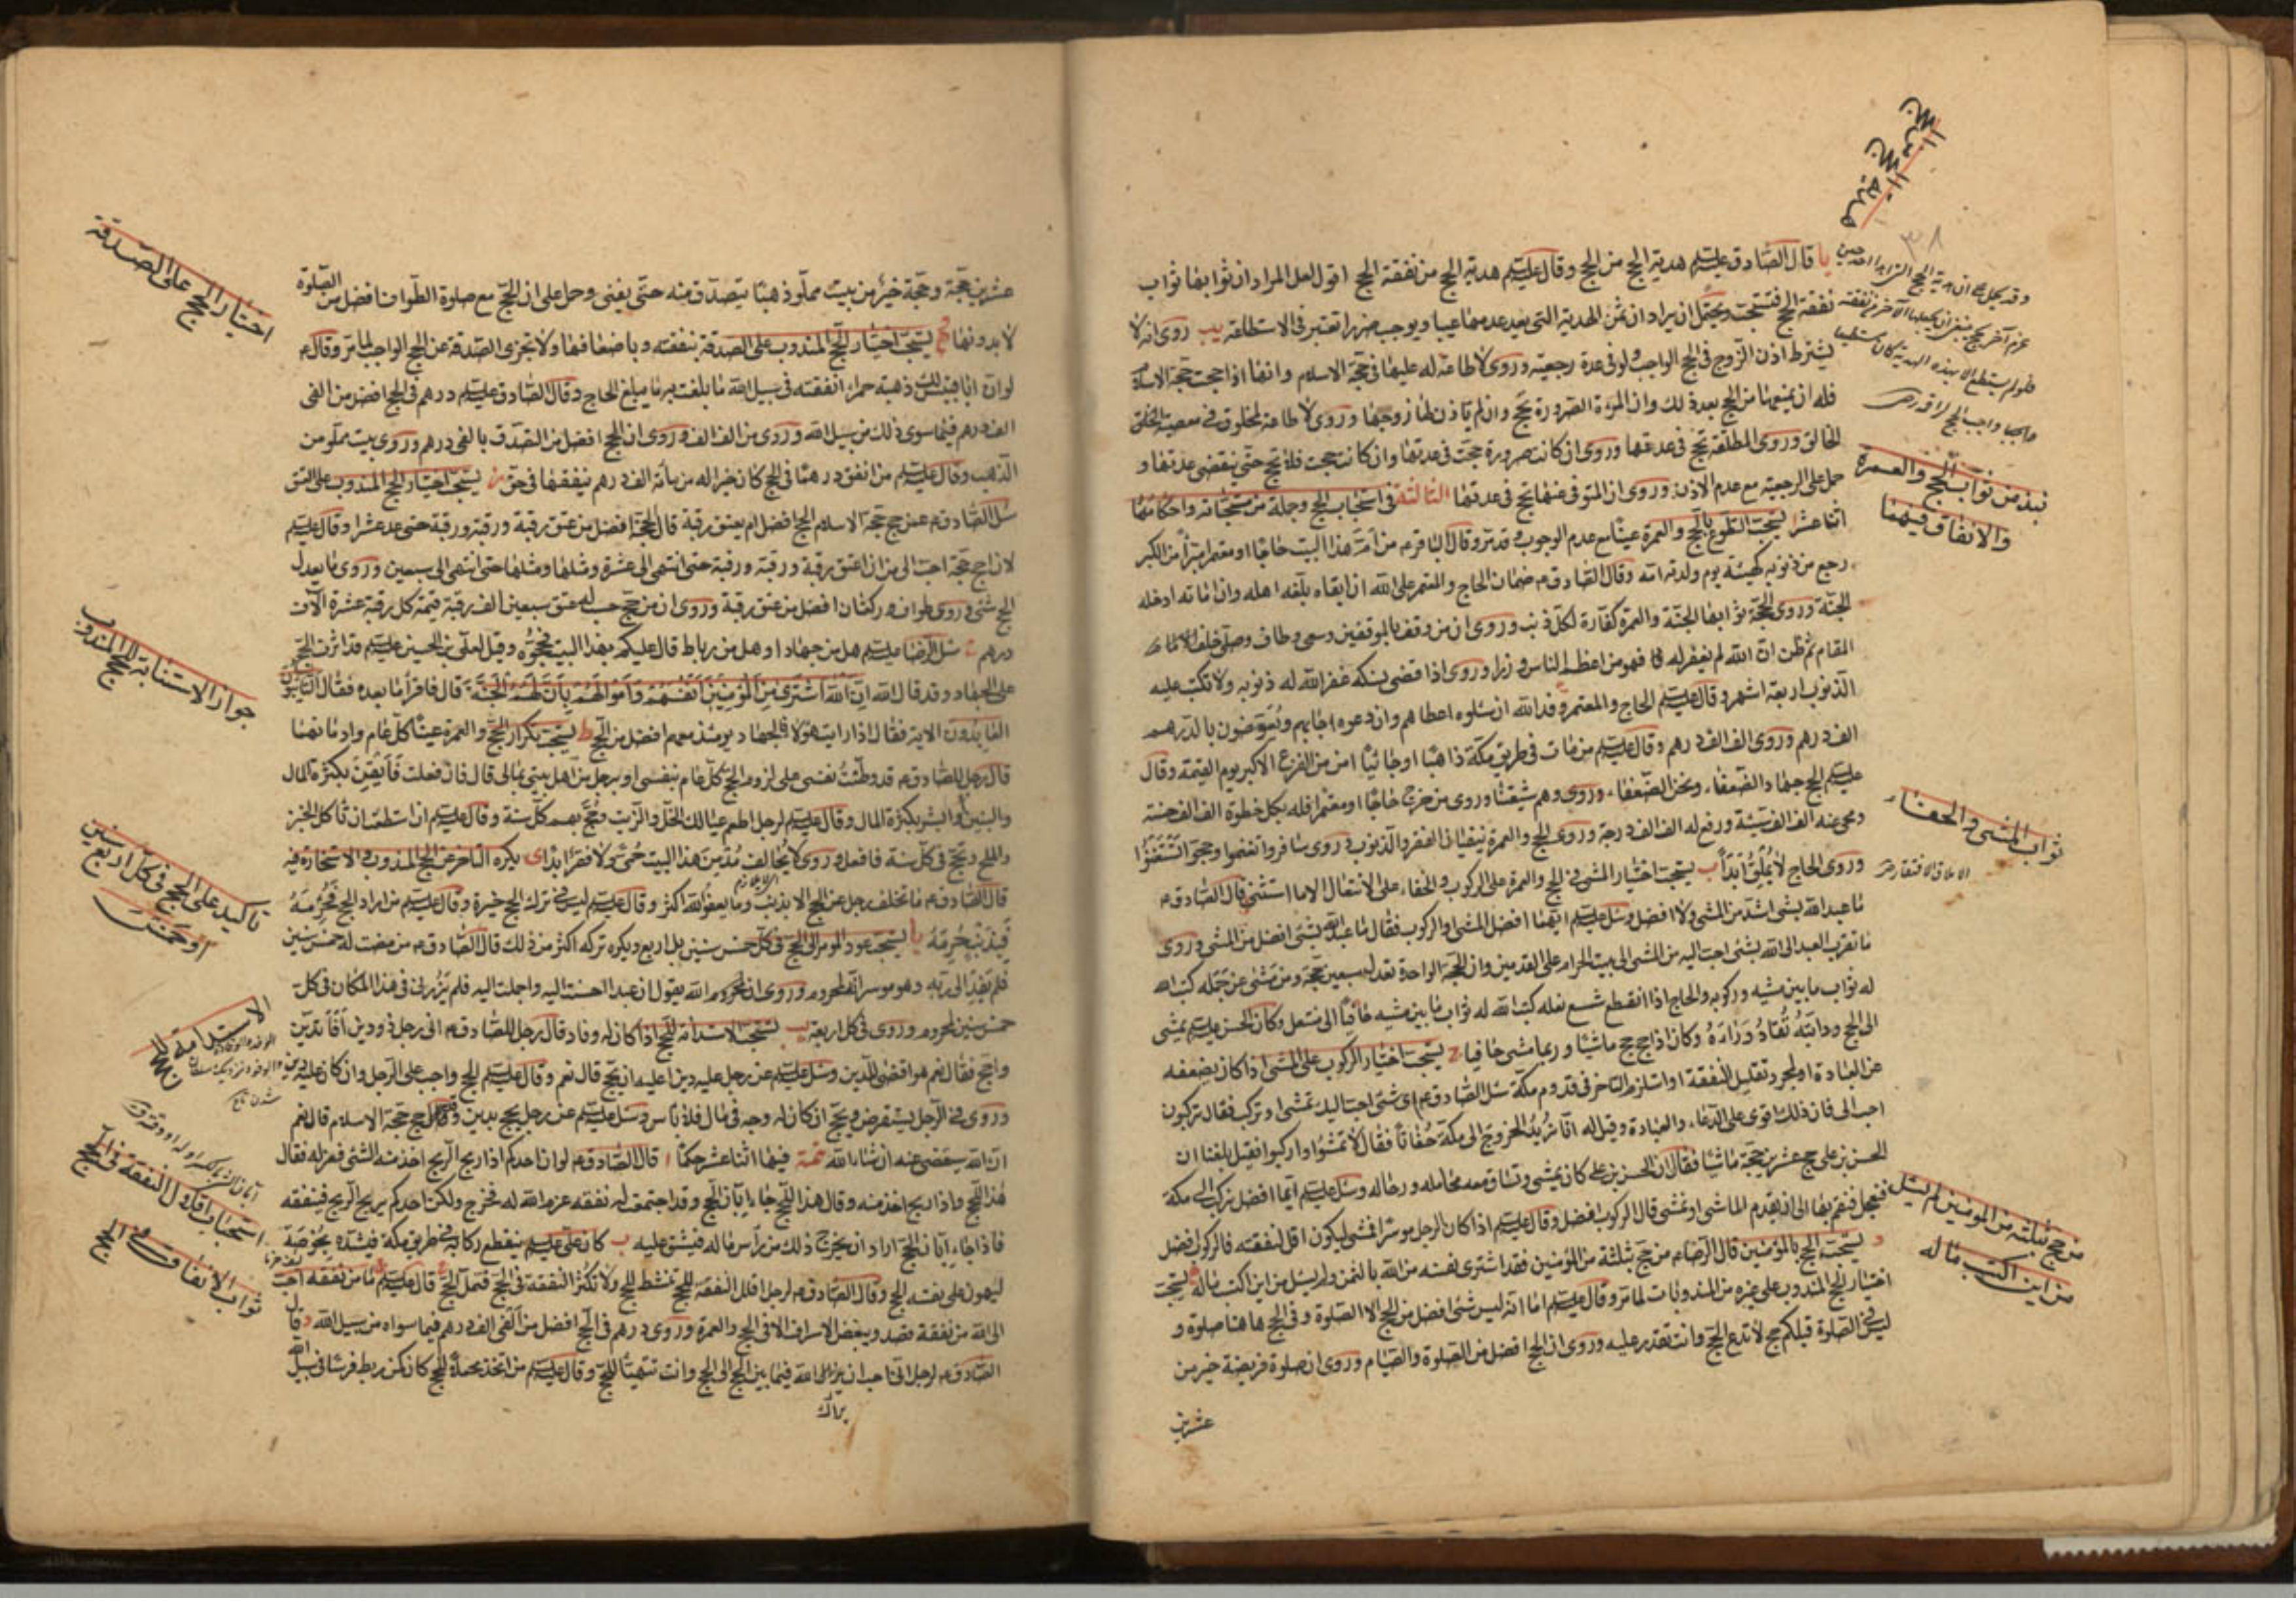 هدية الحج من الحج
يا قال الصادق عليه السلام هدية الحج من الحج وقال عليه السلام هدية الحج من نفقة الحج اقول لعل المراد ان ثوابها ثواب
نفقة الحج فتستحب ويحتمل ان يراد ان ثمن الهدية التي يعد عدمها عيبا ويوجب ضررا تعتبر في الاستطاعة يب روى انه لا
يشترط اذن الزوج في الحج الواجب ولو في عدة رجعية وروى لا طاعة له عليها في حجة الاسلام وانها اذا حجت حجة الاسلام
فله ان يمنعها من الحج بعد ذلك وان المرءة الصرورة تحج وان لم ياذن لها زوجها وروى لا طاعة لمخلوق في معصية الخالق
وروى المطلقة تحج في عدتها وروى ان كانت صرورة حجت في عدتها وان كانت حجت فلا تحج حتى ينقضى عدتها و
حمل على الرجعية مع عدم الاذن وروى ان المتوفى عنها تحج في عدتها الثالثة في استحباب الحج وجملة من مستحباته واحكامها
اثنا عشر ا يستحب التطوع بالحج والعمرة عينا مع عدم الوجوب وقد مر وقال الباقر ع من ام هذا البيت حاجا او معتمرا مبرأ من الكبر
رجع من ذنوبه كهيئة يوم ولدته امه وقال الصادق ع ضمان الحاج والمعتمر على الله ان ابقاه بلغه اهله وان اماته ادخله
الجنة وروى الحجة ثوابها الجنة والعمرة كفارة لكل ذنب وروى ان من وقف بالموقفين وسعى وطاف وصلى خلف
المقام ثم ظن ان الله لم يغفر له فهو من اعظم الناس وزرا وروى اذا قضى نسكه غفر الله له ذنوبه ولا تكتب عليه
الذنوب اربعة اشهر وقال عليه السلام الحاج والمعتمر وفد الله ان سئلوه اعطاهم وان دعوه اجابهم ويعوضون بالدرهم
الف درهم وروى الف الف درهم وقال عليه السلام من مات في طريق مكة ذاهبا او جائيا امن من الفزع الاكبر يوم القيمة وقال
عليه السلام الحج جهاد الضعفاء ونحن الضعفاء وروى وهم شيعتنا وروى من خرج حاجا او معتمرا فله بكل خطوة الف الف حسنة
ومحى عنه الف الف سيئة ورفع له الف الف درجة وروى الحج والعمرة ينفيان الفقر والذنوب وروى سافروا تغنموا وحجوا تستغنوا
وروى الحاج لا يملق ابدا ب يستحب اختيار المشى في الحج والعمرة على الركوب والحفاء على الانتعال الا ما استثنى قال الصادق ع
ما عبد الله بشئ اشد من المشى ولا افضل وسئل عليه السلام ايهما افضل المشى او الركوب فقال ما عبد الله بشئ افضل من المشى وروى
ما تقرب العبد الى الله بشئ احب اليه من المشى الى بيته الحرام على القدمين وان الحجة الواحدة تعدل سبعين حجة ومن مشى عن جمله كتب الله
له ثواب ما بين مشيه وركوبه والحاج اذا انقطع شسع نعله كتب الله له ثواب ما بين مشيه حافيا الى متنعل وكان الحسن عليه السلام يمشى
الى الحج ودابته تقاد وراءه وكان اذا حج حج ماشيا وربما مشى حافيا ج يستحب اختيار الركوب على المشى اذا كان يضعفه
عن العبادة او لمجرد تقليل النفقة او استلزم التاخر في قدوم مكة سئل الصادق ع اى شئ احب اليك تمشى او تركب فقال تركبون
احب الى فان ذلك اقوى على الدعاء والعبادة وقيل له انا نريد الخروج الى مكة حفاتا فقال لا تمشوا واركبوا فقيل بلغنا ان
الحسن بن على حج عشرين حجة ماشيا فقال ان الحسن بن على كان يمشى وتساق معه محامله ورحاله وسئل عليه السلام ايما افضل نركب الى مكة
فنعجل فنقيم بها الى ان يقدم الماشى او نمشى قال الركوب افضل وقال عليه السلام اذا كان الرجل موسرا فمشى ليكون اقل لنفقته فالركوب افضل
د يستحب الحج بالمؤمنين قال الرضا ع من حج بثلثة من المؤمنين فقد اشترى نفسه من الله بالثمن ولم يسئل من اين اكتسب ماله ه يستحب
اختيار الحج المندوب على غيره من المندوبات لما مر وقال عليه السلام اما انه ليس شئ افضل من الحج الا الصلوة وفي الحج هاهنا صلوة و
ليس في الصلوة قبلكم حج لا تدع الحج وانت تقدر عليه وروى ان الحج افضل من الصلوة والصيام وروى ان صلوة فريضة خير من
عشرين
نبذ من ثواب الحج والعمرة
والانفاق فيهما
ثواب المشى والحفاء
من حج بثلثة من المؤمنين لم يسئل
من اين اكتسب ماله
عشرين حجة وحجة خير من بيت مملو ذهبا يتصدق منه حتى يفنى وحمل على ان الحج مع صلوة الطواف افضل من الصلوة
لا بدونها و يستحب اختيار الحج المندوب على الصدقة بنفقته وباضعافها ولا تجزى الصدقة عن الحج الواجب لما مر وقال ع
لو ان ابا قبيس لك ذهبة حمراء انفقته في سبيل الله ما بلغت به ما يبلغ الحاج وقال الصادق عليه السلام درهم في الحج افضل من الفى
الف درهم فيما سوى ذلك من سبيل الله وروى من الف الف وروى ان الحج افضل من التصدق بالفى درهم وروى بيت مملو من
الذهب وقال عليه السلام من انفق درهما في الحج كان خيرا له من مائة الف درهم ينفقها في حق ز يستحب اختيار الحج المندوب على العتق
سئل الصادق ع عمن حج حجة الاسلام الحج افضل ام يعتق رقبة قال الحجة افضل من عتق رقبة ورقبة ورقبة حتى عد عشرا وقال عليه السلام
لان احج حجة احب الى من ان اعتق رقبة ورقبة ورقبة حتى انتهى الى عشرة ومثلها ومثلها حتى انتهى الى سبعين وروى ما يعدل
الحج شئ وروى طواف وركعتان افضل من عتق رقبة وروى ان من حج حسب له عتق سبعين الف رقبة قيمة كل رقبة عشرة الاف
درهم ح سئل الرضا عليه السلام هل من جهاد او هل من رباط قال عليكم بهذا البيت فحجوه وقيل لعلى بن الحسين عليه السلام قد اثرت الحج
على الجهاد وقد قال الله ان الله اشترى من المؤمنين انفسهم واموالهم بان لهم الجنة قال فاقرأ ما بعده فقال التائبون
العابدون الاية فقال اذا رايت هؤلاء فالجهاد يومئذ معهم افضل من الحج ط يستحب تكرار الحج والعمرة عينا كل عام وادمانهما
قال رجل للصادق ع قد وطنت نفسى على لزوم الحج كل عام بنفسى او برجل من اهل بيتى بمالى قال فان فعلت فايقن بكثرة المال
والبنين او ابشر بكثرة المال وقال عليه السلام لرجل اطعم عيالك الخل والزيت وحج بهم كل سنة وقال عليه السلام ان استطعت ان تاكل الخبز
والملح وتحج في كل سنة فافعل وروى لا يحالف مدمن هذا البيت حمى ولا فقر ابدا ى يكره التاخر عن الحج المندوب والاستخارة فيه
قال الصادق ع ما تخلف رجل عن الحج الا بذنب وما يعفو الله اكثر وقال عليه السلام ليس في ترك الحج خيرة وقال عليه السلام من اراد الحج فحرمه
فبذنب حرمه يا يستحب عود الموسر الى الحج في كل خمس سنين بل اربع ويكره تركه اكثر من ذلك قال الصادق ع من مضت له خمس سنين
فلم يفد الى ربه وهو موسر انه لمحروم وروى ان لمحروم الله يقول ان عبدا احسنت اليه واجملت اليه فلم يزرنى في هذا المكان في كل
خمس سنين لمحروم وروى في كل اربعة يب يستحب الاستدانة للحج اذا كان له وفاء قال رجل للصادق ع انى رجل ذو دين افاتدين
واحج فقال نعم هو اقضى للدين وسئل عليه السلام عن رجل عليه دين اعليه ان يحج قال نعم وقال عليه السلام الحج واجب على الرجل وان كان عليه دين
وروى في الرجل يستقرض ويحج ان كان له وجه في مال فلا باس وسئل عليه السلام عن رجل يحج بدين وقد حج حجة الاسلام قال نعم
ان الله سيقضى عنه ان شاء الله تتمة فيها اثنا عشر حكما ا قال الصادق ع لو ان احدكم اذا ربح الربح اخذ منه الشئ فعزله فقال
هذا للحج واذا ربح اخذ منه وقال هذا للحج جاء ابان الحج وقد اجتمعت له نفقة عزم الله له فخرج ولكن احدكم يربح الربح فينفقه
فاذا جاء ابان الحج اراد ان يخرج ذلك من راس ماله فيشق عليه ب كان على عليه السلام ينقطع ركابه في طريق مكة فيشده بخوصة
ليهون على نفسه الحج وقال الصادق ع لرجل اقلل النفقة للحج تنشط للحج ولا تكثر النفقة في الحج فتمل الحج ج قال عليه السلام ما من نفقة احب
الى الله من نفقة قصد ويبغض الاسراف الا في الحج والعمرة وروى درهم في الحج افضل من الفى الف درهم فيما سواه من سبيل الله د قال
الصادق ع لرجل انى احب ان يراك الله فيما بين الحج الى الحج وانت تتهيأ للحج وقال عليه السلام من اتخذ محملا للحج كان كمن ربط فرسا في سبيل الله
اختيار الحج على الصدقة
جواز الاستنابة للحج المندوب
تاكيد على الحج في كل اربع سنين
او خمس
الاستدانة للحج
استحباب اقلال النفقة في الحج
ثواب الانفاق في الحج